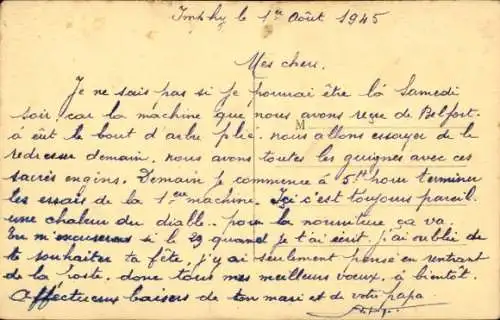 Imphy le 1er Août 1945
Mes chers.
Je ne sais pas si je pourrai être là Samedi
soir, car la machine que nous avons reçue de Belfort.
M
à eût le bout d'arbre plié. nous allons essayer de le
redresser demain. nous avons toutes les guignes avec ces
sacrés engins. Demain je commence à 5H pour terminer
les essais de la 1ère machine. Ici c'est toujours pareil.
une chaleur du diable.. pour la nourriture ça va.
Tu m'excuseras si le 29 quand je t'ai écrit. j'ai oublié de
te souhaiter ta fête, j'y ai seulement pensé en rentrant
de la Poste. donc tous mes meilleurs voeux. à bientôt.
Affectueux baisers de ton mari et de votre papa.